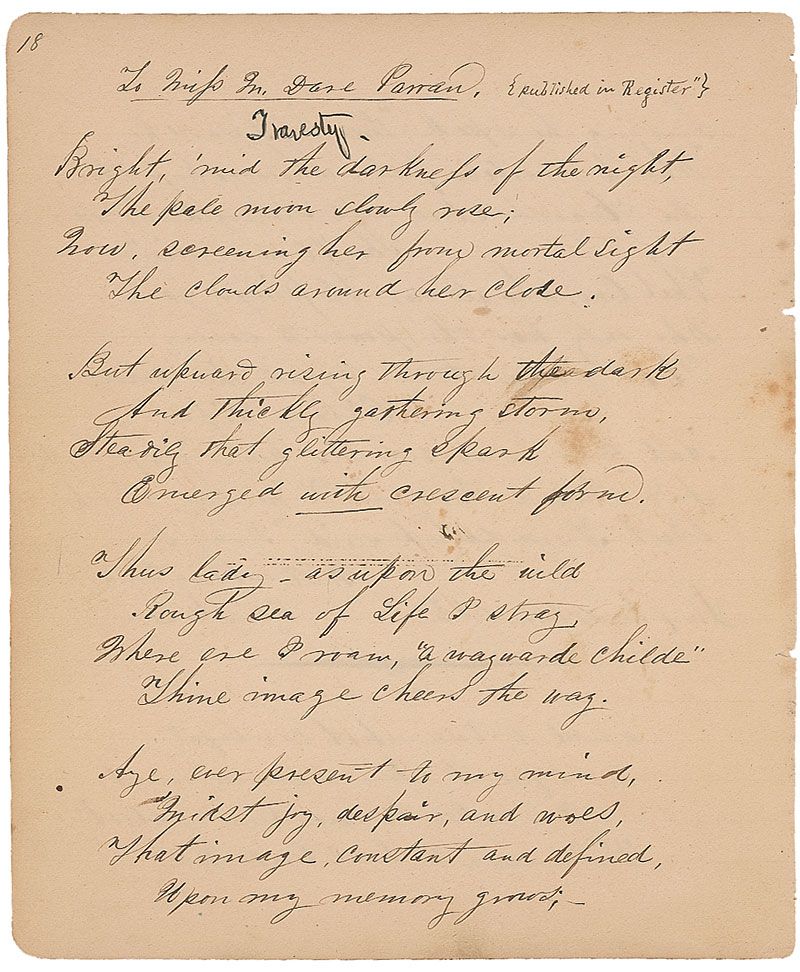 18
To Miss M. Dare Parran, {published in Register"}
Travesty.
Bright, 'mid the darkness of the night,
The pale moon slowly rose;
Now, screening her from mortal sight
The clouds around her close.
But upward rising through the dark
And thickly gathering storm,
Steadily that glittering spark
Emerged with crescent form.
Thus lady – as upon the wild
Rough sea of Life I stray,
Where ere I roam, "a waywarde childe"
Thine image cheers the way.
Aye, ever present to my mind,
'Midst joy, despair, and woes,
That image, constant and defined,
Upon my memory grows; –